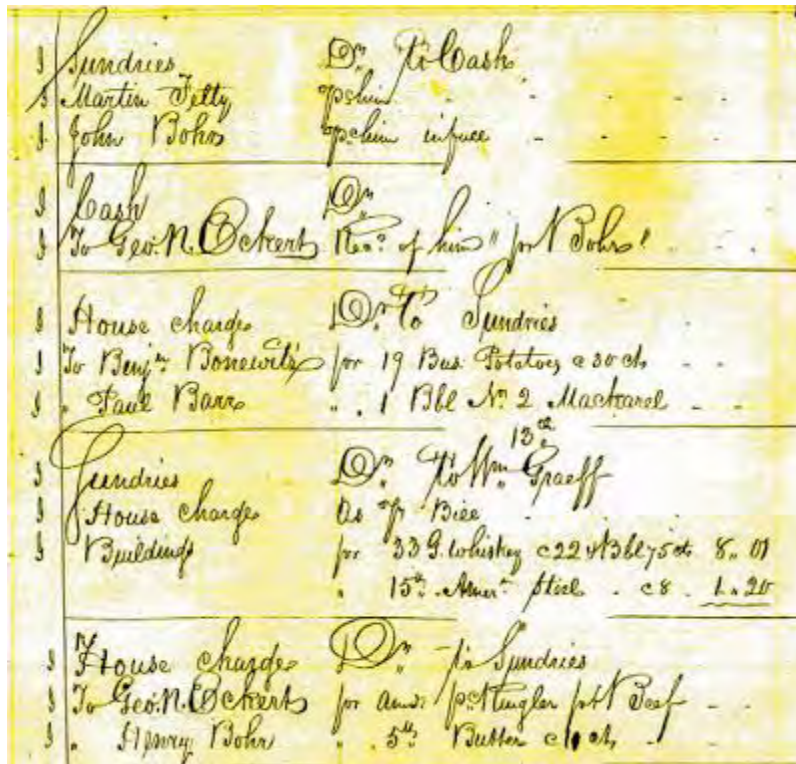 Sundries Dr. to Cash
Martin Fetty pd him
John Bohr pd him in full
Cash Dr.
To Geo. N. Eckert Rec. of him " for N Bohr "
House charge Dr. To Sundries
To Benjn. Bonewitz for 19 Bus. Potatoes c 30 cts
" Paul Barr " 1 Bbl No. 2 Mackarel
13th
Sundries Dr. to Wm. Graeff
House charge As pr Bill
Buildings for 33 G. Whiskey c 22 & Bbl 75 cts 8.. 01
" 15 lb. Amern. Steel c 8 1.. 20
House charge Dr. to Sundries
To Geo. N. Eckert for Amt. pd for Beef
" Henry Bohr " 5 lb Butter c cts